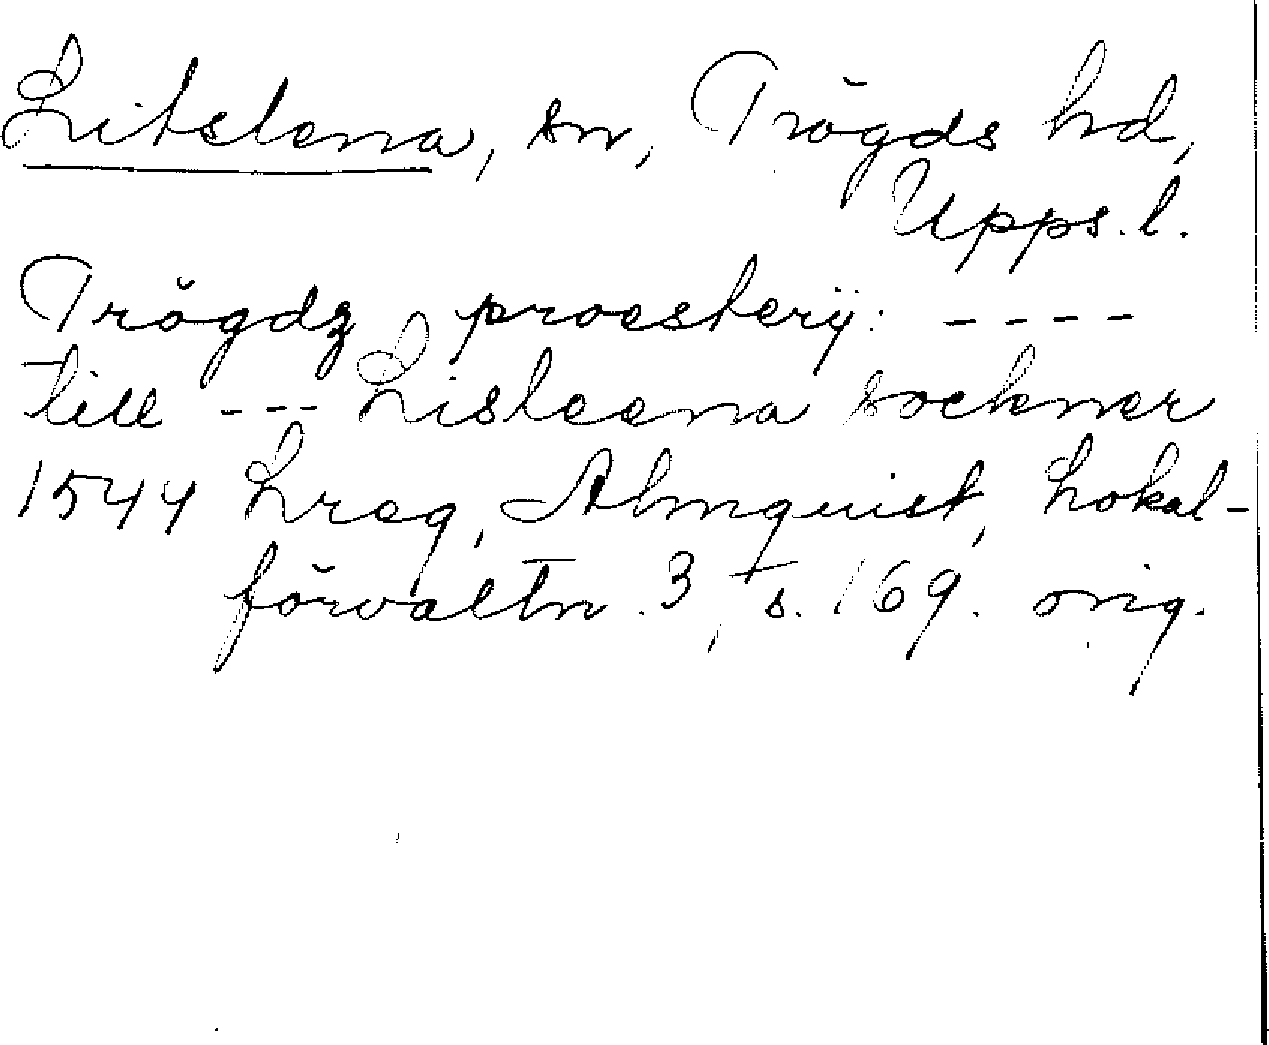 Litslena, sn, Trögds hd,
Upps.l.
Trögdz proesterij: ----
till --- Lisleena sockner
1544 Lreg, Almquist, Lokal-
förvaltn. 3, s. 169. orig.